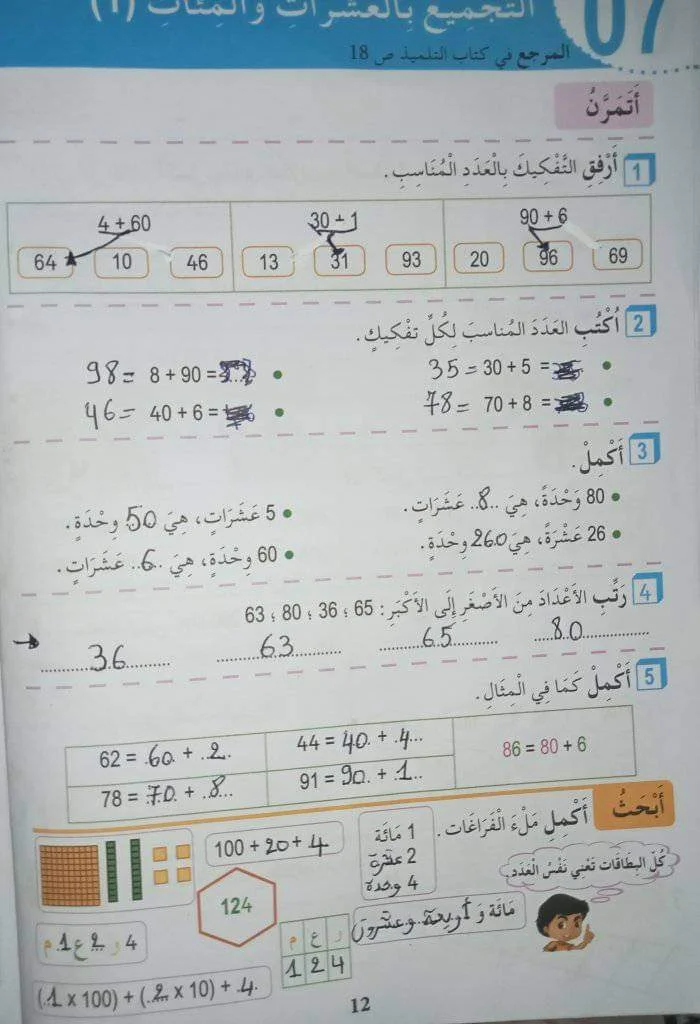 07 التجميع بالعشرات والمئات (1)
المرجع في كتاب التلميذ ص 18
أَتَمَرَّنُ
1 أَرْفِقِ التَّفْكِيكَ بِالْعَدَدِ الْمُنَاسِبِ.
90 + 6
69 96 20
30 + 1
93 31 13
4 + 60
46 10 64
2 أُكْتُبِ العَدَدَ المُناسبَ لِكُلِّ تفْكِيكٍ.
• 35 = 30 + 5 =
• 98 = 8 + 90 =
• 78 = 70 + 8 =
• 46 = 40 + 6 =
3 أَكْمِلْ.
• 80 وَحْدَةً، هِيَ ..8.. عَشَرَاتٍ.
• 5 عَشَرَاتٍ، هِيَ 50 وِحْدَةٍ.
• 26 عَشْرَةً، هِيَ 260 وِحْدَةٍ.
• 60 وِحْدَةٍ، هِيَ ..6.. عَشَرَاتٍ.
4 رَتِّبِ الأَعْدَادَ مِنَ الأَصْغَرِ إِلَى الأَكْبَرِ: 65 ؛ 36 ؛ 80 ؛ 63
36 63 65 80
5 أَكْمِلْ كَمَا فِي الْمِثَالِ.
86 = 80 + 6
44 = 40 + 4
62 = 60 + 2
91 = 90 + 1
78 = 70 + 8
أَبْحَثُ
أَكْمِلِ مَلْءَ الْفَرَاغَات.
كُلُّ البِطَاقَات تَعْنِي نَفْسُ العَدَد.
1 مَائَة
2 عشرة
4 وحدة
100 + 20 + 4
124
مَائَة وَ أربعة وعشرون
م ع و
1 2 4
4 و 2 ع 1 م
(1 x 100) + (2 x 10) + 4
12